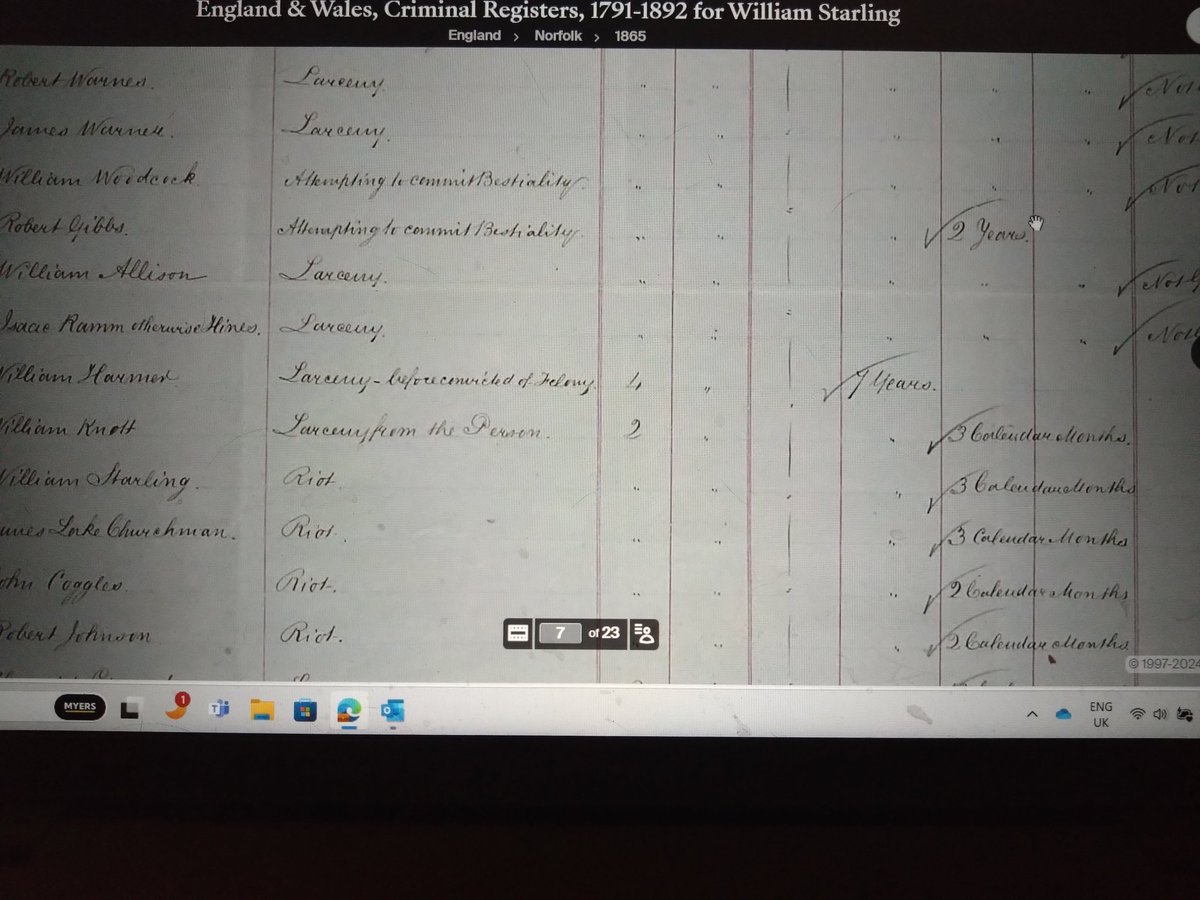 England & Wales, Criminal Registers, 1791-1892 for William Starling
England > Norfolk > 1865
Robert Warnes. Larceny. " " " " " Not
James Warnes. Larceny. " " " " " Not
William Woodcock. Attempting to commit Bestiality. " " " " " Not
Robert Gibbs. Attempting to commit Bestiality. " " " 2 Years.
William Allison Larceny. " " " " " Not G
Isaac Ramm otherwise Hines. Larceny. " " " " " Not
William Harmer Larceny - before convicted of Felony. 4 " 7 Years.
William Knott Larceny from the Person. 2 " " 3 Calendar Months.
William Starling. Riot. " " " 3 Calendar Months
Lake Churchman. Riot. " " " 3 Calendar Months
John Coggles. Riot. " " " 2 Calendar Months
Robert Johnson Riot. " " " 2 Calendar Months
7 of 23
© 1997-2024
MYERS
1
ENG
UK